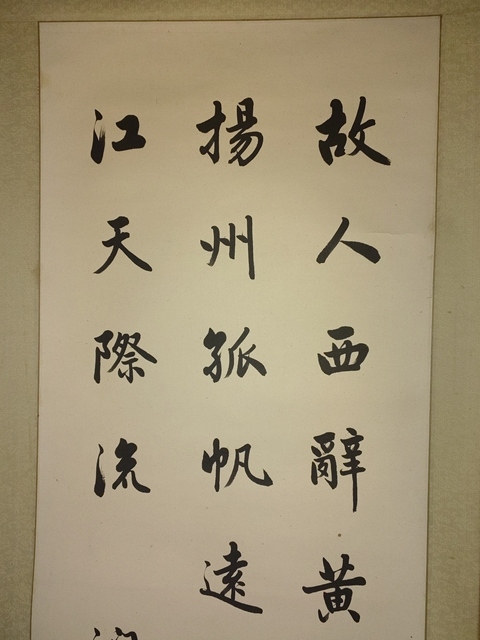 故人西辭黃
揚州孤帆遠
江天際流